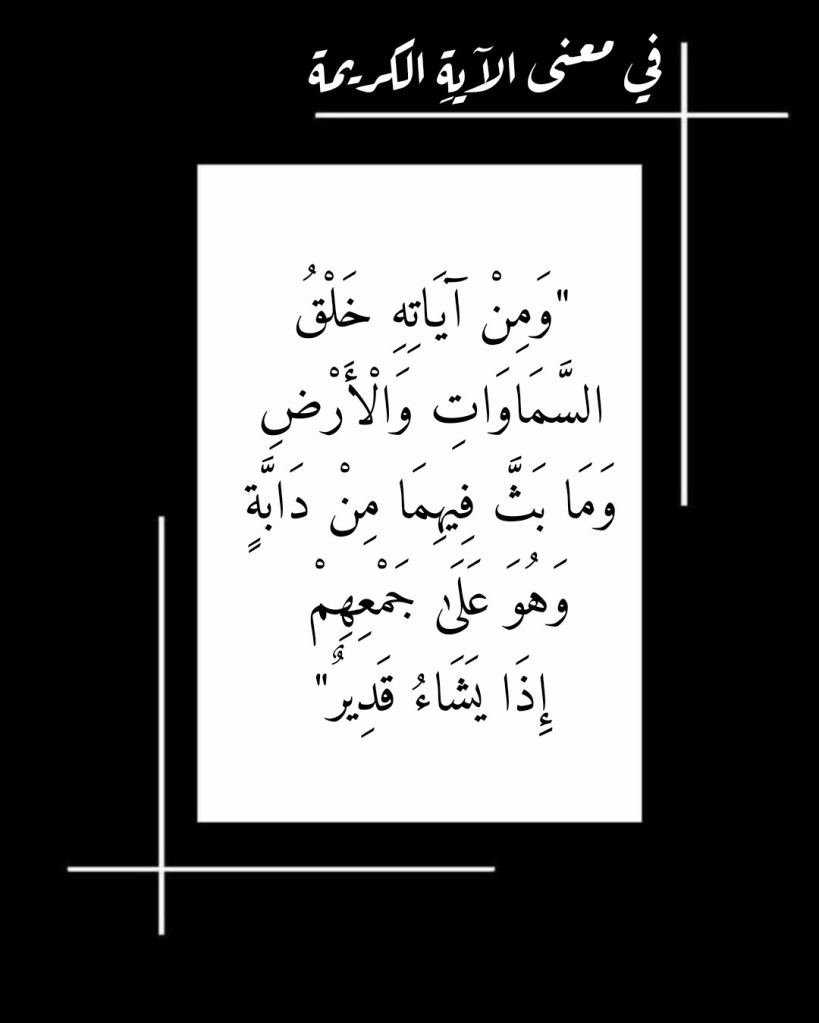 في معنى الآيةِ الكريمة
"وَمِنْ آيَاتِهِ خَلْقُ
السَّمَاوَاتِ وَالْأَرْضِ
وَمَا بَثَّ فِيهِمَا مِنْ دَابَّةٍ
وَهُوَ عَلَىٰ جَمْعِهِمْ
إِذَا يَشَاءُ قَدِيرٌ"